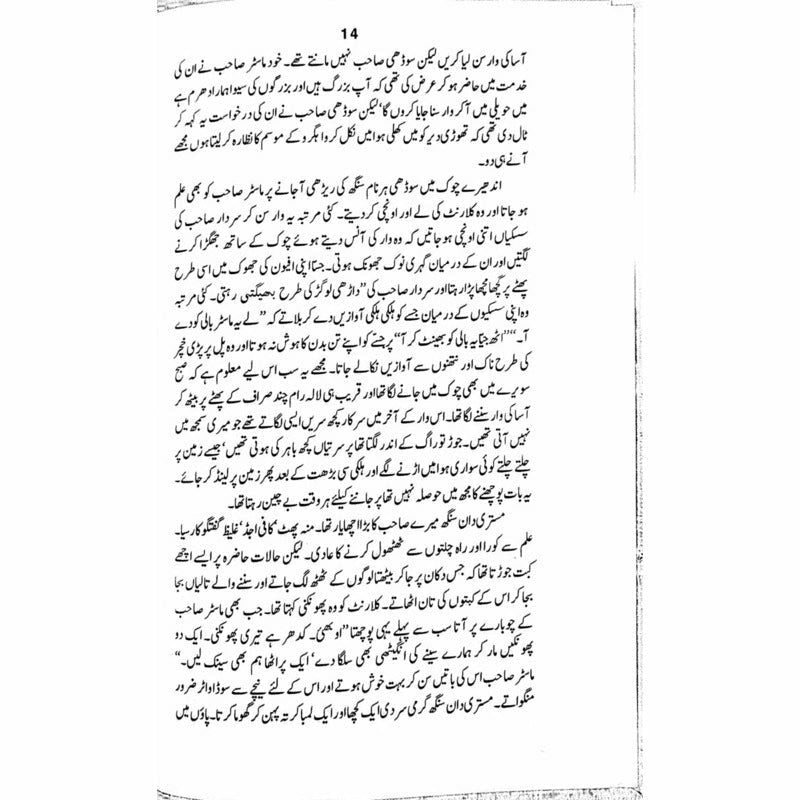 14
آسا کی وار سن لیا کریں لیکن سوڈھی صاحب نہیں مانتے تھے۔ خود ماسٹر صاحب نے ان کی
خدمت میں حاضر ہو کر عرض کی تھی کہ آپ بزرگ ہیں اور بزرگوں کی سیوا ہمارا دھرم ہے
میں حویلی میں آ کر وار سنا جایا کروں گا‘ لیکن سوڈھی صاحب نے ان کی درخواست یہ کہہ کر
ٹال دی تھی کہ تھوڑی دیر کو میں کھلی ہوا میں نکل کر واہگرو کے موسم کا نظارہ کر لیتا ہوں مجھے
آنے ہی دو۔
اندھیرے چوک میں سوڈھی ہر نام سنگھ کی ریڑھی آ جانے پر ماسٹر صاحب کو بھی علم
ہو جاتا اور وہ کلارنٹ کی لے اور اونچی کر دیتے۔ کئی مرتبہ یہ وار سن کر سردار صاحب کی
سسکیاں اتنی اونچی ہو جاتیں کہ وہ وار کی آنس دیتے ہوئے چوک کے ساتھ جھگڑا کرنے
لگتیں اور ان کے درمیان گہری نوک جھونک ہوتی۔ جستا اپنی افیون کی جھوک میں اسی طرح
پھٹے پر گچھا مچھا پڑا رہتا اور سردار صاحب کی ”داڑھی لوگڑ کی طرح بھیگتی رہتی۔ کئی مرتبہ
وہ اپنی سسکیوں کے درمیان جسے کو ہلکی ہلکی آوازیں دے کر بلاتے کہ ”لے یہ ماسٹر بالی کو دے
آ۔“ ”اٹھ جسّا یہ بالی کو بھینٹ کر آ“ پر جسّے کو اپنے تن بدن کا ہوش نہ ہوتا اور وہ پل پر پڑی خچر
کی طرح ناک اور نتھنوں سے آوازیں نکالے جاتا۔ مجھے یہ سب اس لیے معلوم ہے کہ صبح
سویرے میں بھی چوک میں جانے لگا تھا اور قریب ہی لالہ رام چند صراف کے پھٹے پر بیٹھ کر
آسا کی وار سننے لگا تھا۔ اس وار کے آخر میں سرکار کچھ سریں ایسی لگاتے تھے جو میری سمجھ میں
نہیں آتی تھیں۔ جوڑ تو راگ کے اندر لگتا تھا پر سرتیاں کچھ باہر کی ہوتی تھیں‘ جیسے زمین پر
چلتے چلتے کوئی سواری ہوا میں اڑنے لگے اور ہلکی سی بڑھت کے بعد پھر زمین پر لینڈ کر جائے۔
یہ بات پوچھنے کا مجھ میں حوصلہ نہیں تھا پر جاننے کیلئے ہر وقت بے چین رہتا تھا۔
مستری دان سنگھ میرے صاحب کا بڑا اچھا یار تھا۔ منہ پھٹ‘ کافی اجڈ‘ غلیظ گفتگو کا رسیا۔
علم سے کورا اور راہ چلتوں سے ٹھٹھول کرنے کا عادی۔ لیکن حالات حاضرہ پر ایسے اچھے
کبت جوڑتا تھا کہ جس دکان پر جا کر بیٹھتا لوگوں کے ٹھٹھ لگ جاتے اور سننے والے تالیاں بجا
بجا کر اس کے کبتوں کی تان اٹھاتے۔ کلارنٹ کو وہ پھونکنی کہتا تھا۔ جب بھی ماسٹر صاحب
کے چوبارے پر آتا سب سے پہلے یہی پوچھتا ”او بھئی۔ کدھر ہے تیری پھونکنی۔ ایک دو
پھونکیں مار کر ہمارے سینے کی انگیٹھی بھی سلگا دے‘ ایک پر اٹھا ہم بھی سینک لیں۔“
ماسٹر صاحب اس کی باتیں سن کر بہت خوش ہوتے اور اس کے لئے نیچے سے سوڈا واٹر ضرور
منگواتے۔ مستری دان سنگھ گرمی سردی ایک کچھا اور ایک لمبا کرتہ پہن کر گھوما کرتا۔ پاؤں میں